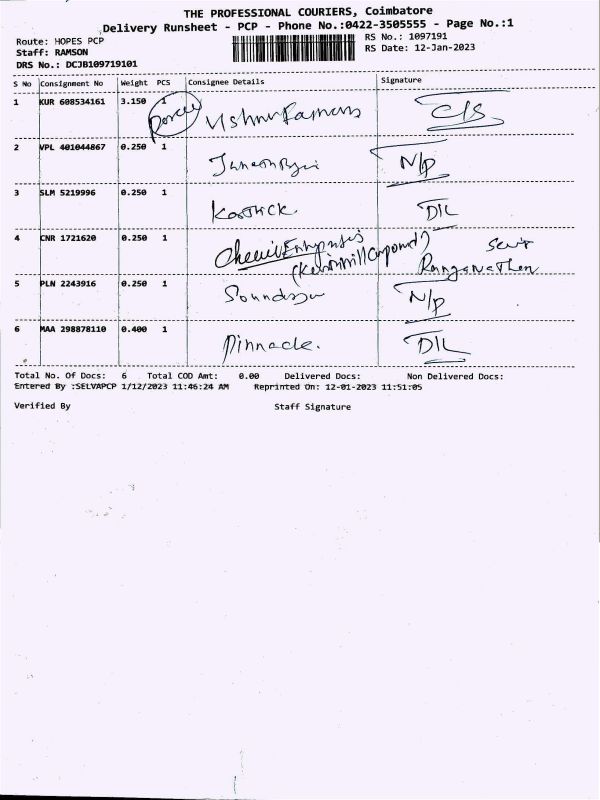 THE PROFESSIONAL COURIERS, Coimbatore
Delivery Runsheet - PCP - Phone No.:0422-3505555 - Page No.:1
Route: HOPES PCP RS No.: 1097191
Staff: RAMSON RS Date: 12-Jan-2023
DRS No.: DCJB109719101
S No Consignment No Weight PCS Consignee Details Signature
1 KUR 608534161 3.150 1 Vishnu
2 VPL 401044867 0.250 1 N/P
3 SLM 5219996 0.250 1 Karthick DIL
4 CNR 1721620 0.250 1
5 PLN 2243916 0.250 1 N/P
6 MAA 298878110 0.400 1 Pinnacle. DIL
Total No. Of Docs: 6 Total COD Amt: 0.00 Delivered Docs: Non Delivered Docs:
Entered By :SELVAPCP 1/12/2023 11:46:24 AM Reprinted On: 12-01-2023 11:51:05
Verified By Staff Signature